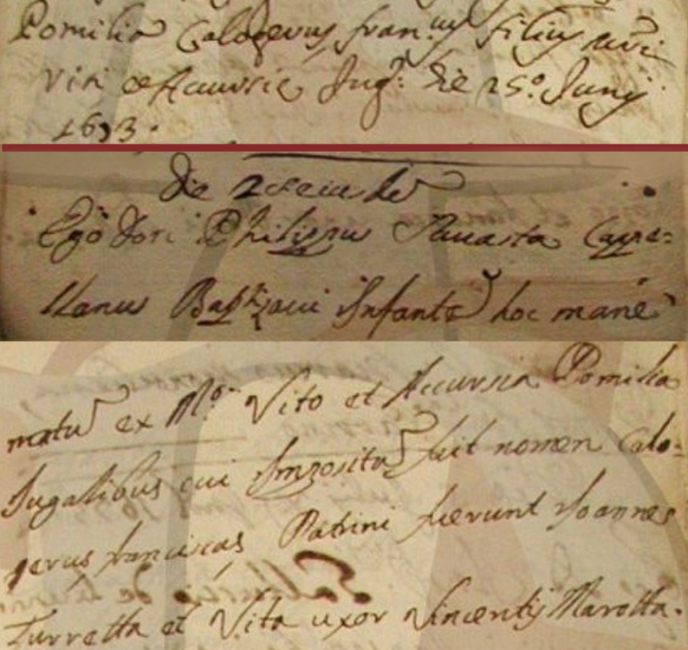 Pomilia Calogerus fran.cus filius
Viti et Accursie Jug.m die 25.o Junij
1693.
Die 2
Ego Don Philippus Cape=
llanus Baptizavi Infante hoc mane
natu ex M.o Vito et Accursia Pomilia
Jugalibus cui Impositu fuit nomen Calo=
gerus franciscus Patrini fuerunt Joannes
Turretta et Vita uxor Vincentij Marotta.